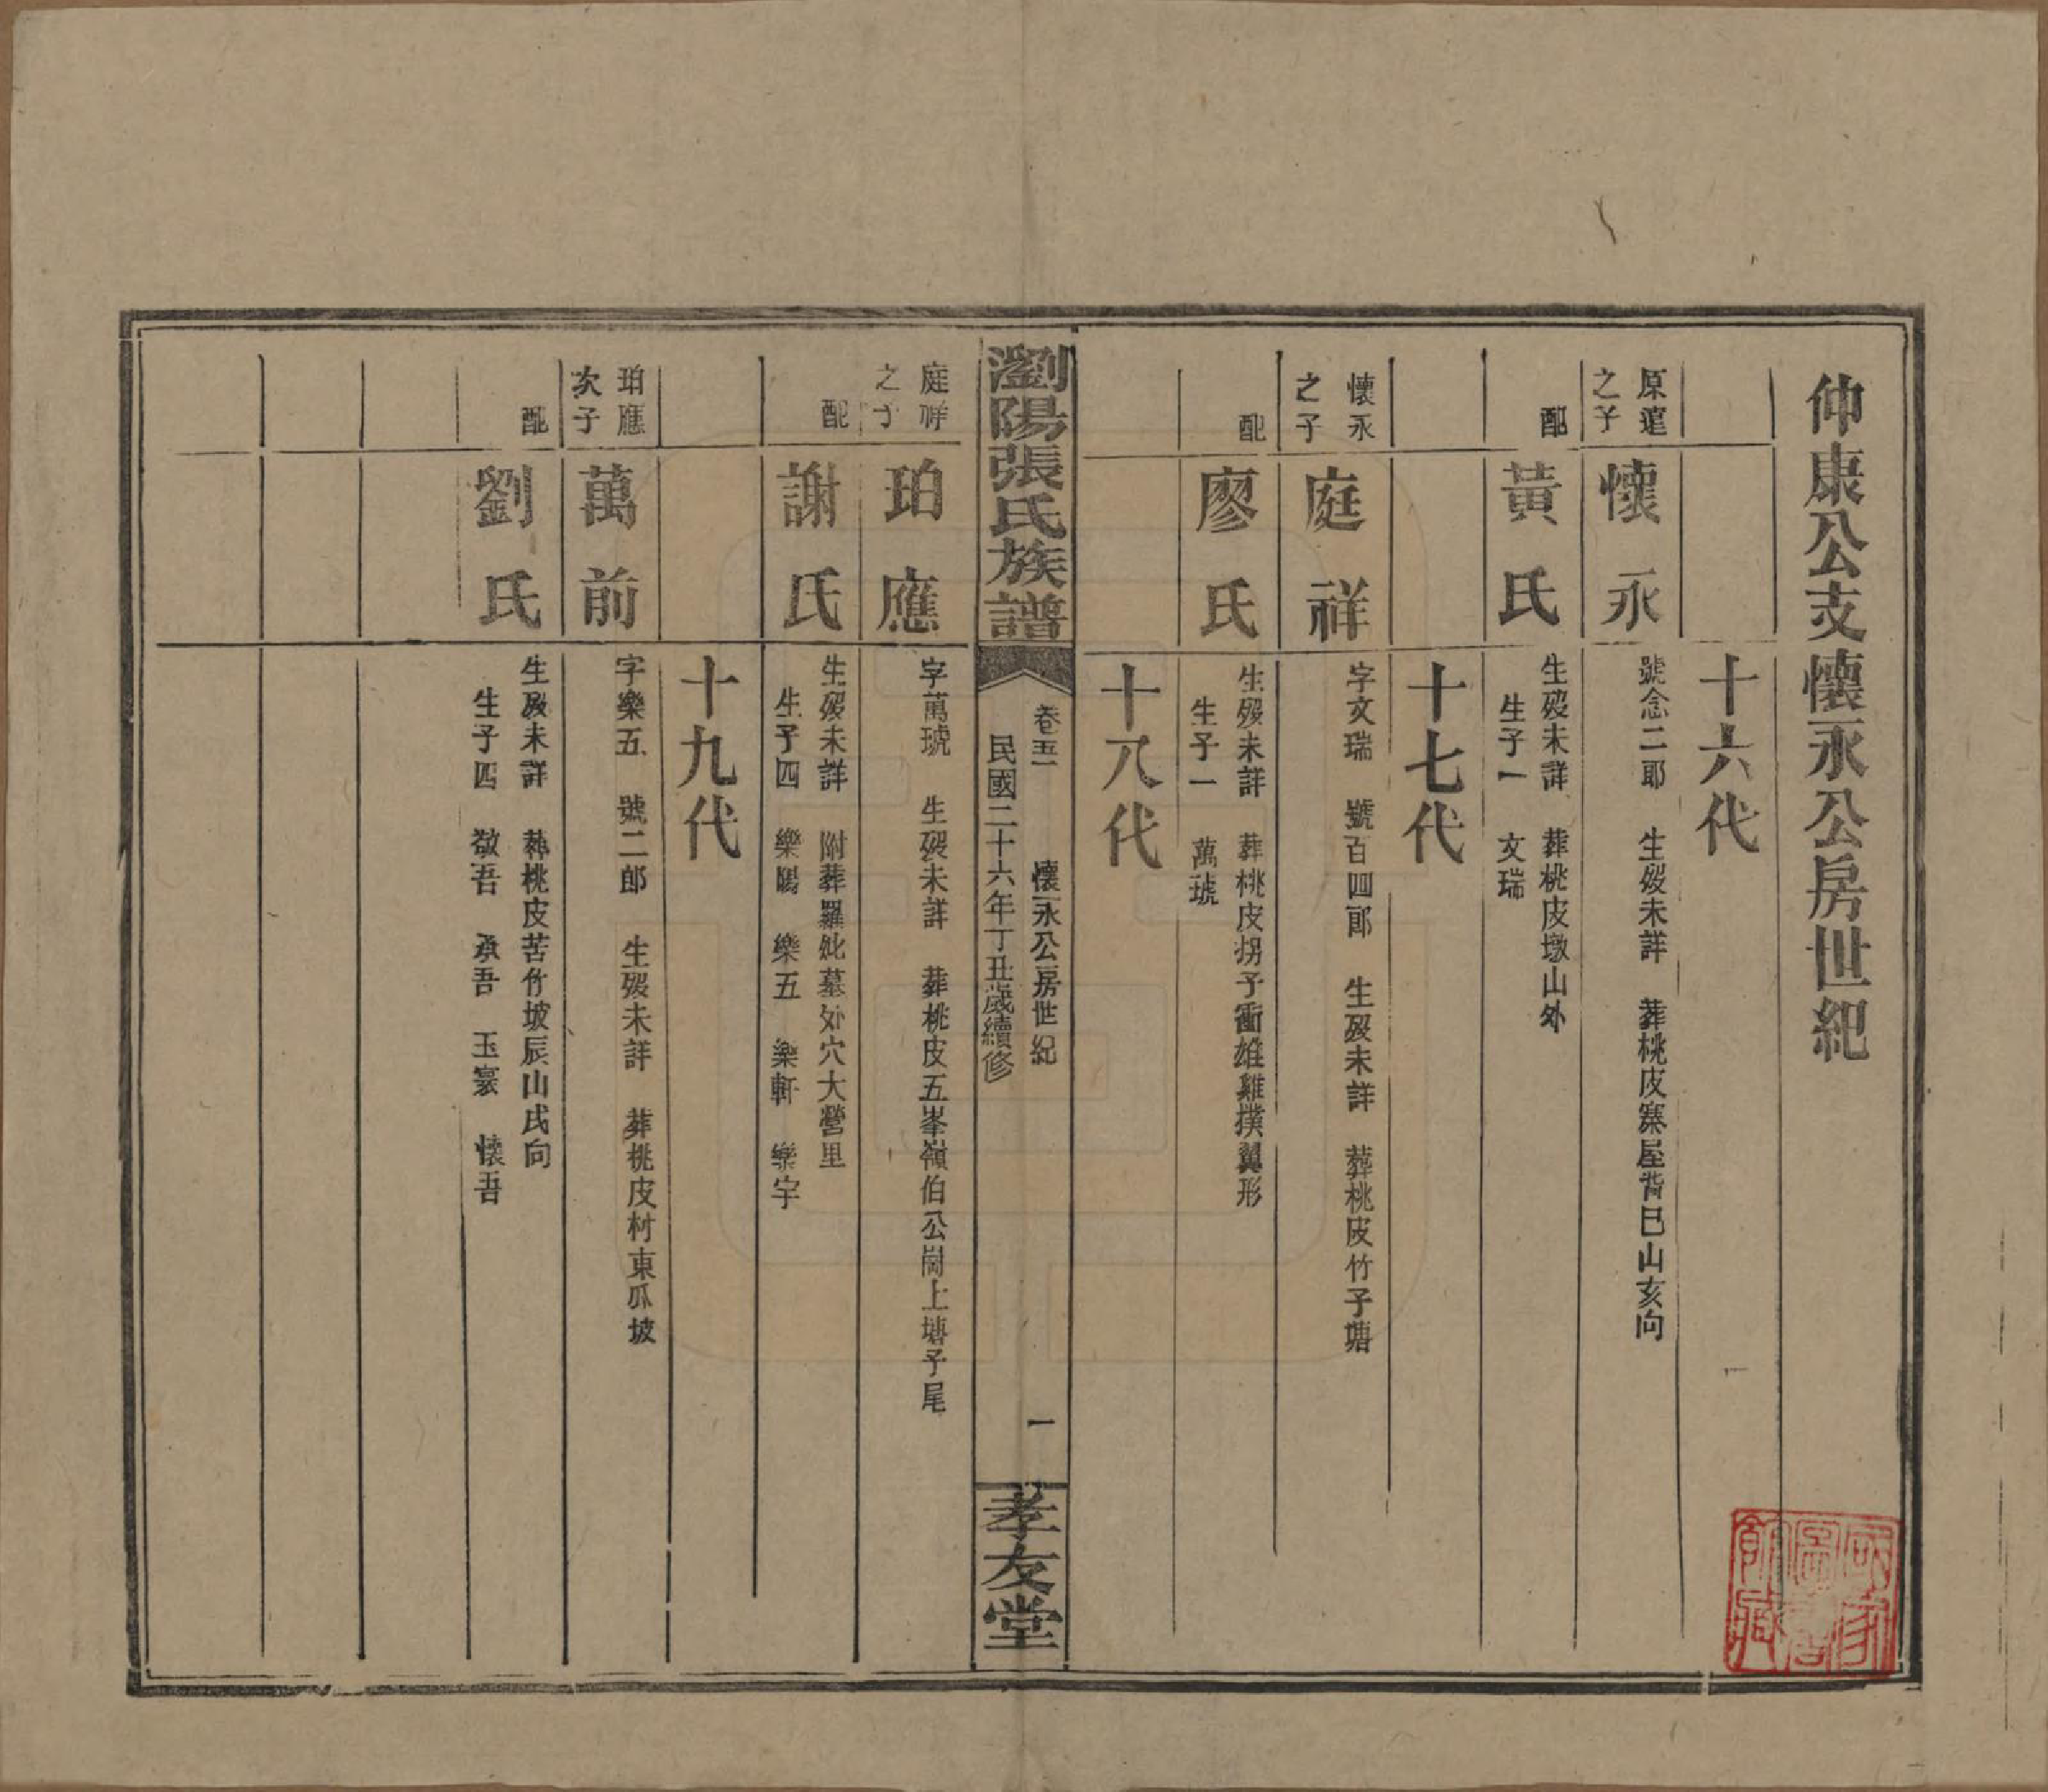 仲康公支懷永公房世紀
十六代
原瓊之子
懷永
號念二郎　生歿未詳　葬桃皮寨屋背巳山亥向
配
黃氏
生歿未詳　葬桃皮墩山外
生子一　文瑞
十七代
懷永之子
庭祥
字文瑞　號百四郎　生歿未詳　葬桃皮竹子塘
配
廖氏
生歿未詳　葬桃皮拐子衝雄雞撲翼形
生子一　萬琥
十八代
瀏陽張氏族譜
卷五　懷永公房世紀　一
民國二十六年丁丑歲續修
孝友堂
庭祥之子
珀應
字萬琥　生歿未詳　葬桃皮五峯嶺伯公崗上塘子尾
配
謝氏
生歿未詳　附葬羅妣墓外穴大營里
生子四　樂陽　樂五　樂軒　樂宇
十九代
珀應次子
萬前
字樂五　號二郎　生歿未詳　葬桃皮村東瓜坡
配
劉氏
生歿未詳　葬桃皮苦竹坡辰山戌向
生子四　敬吾　承吾　玉寰　懷吾
國家圖書館藏